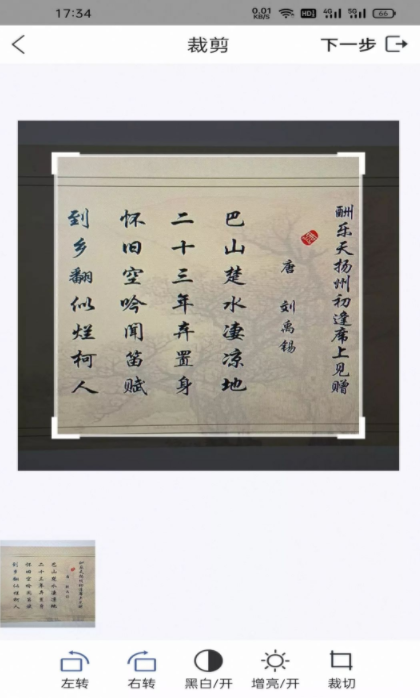 17:34
0.01
KB/S
HD
4G
5G
66
裁剪
下一步
酬乐天扬州初逢席上见赠
唐 刘禹锡
巴山楚水凄凉地
二十三年弃置身
怀旧空吟闻笛赋
到乡翻似烂柯人
左转
右转
黑白/开
增亮/开
裁切